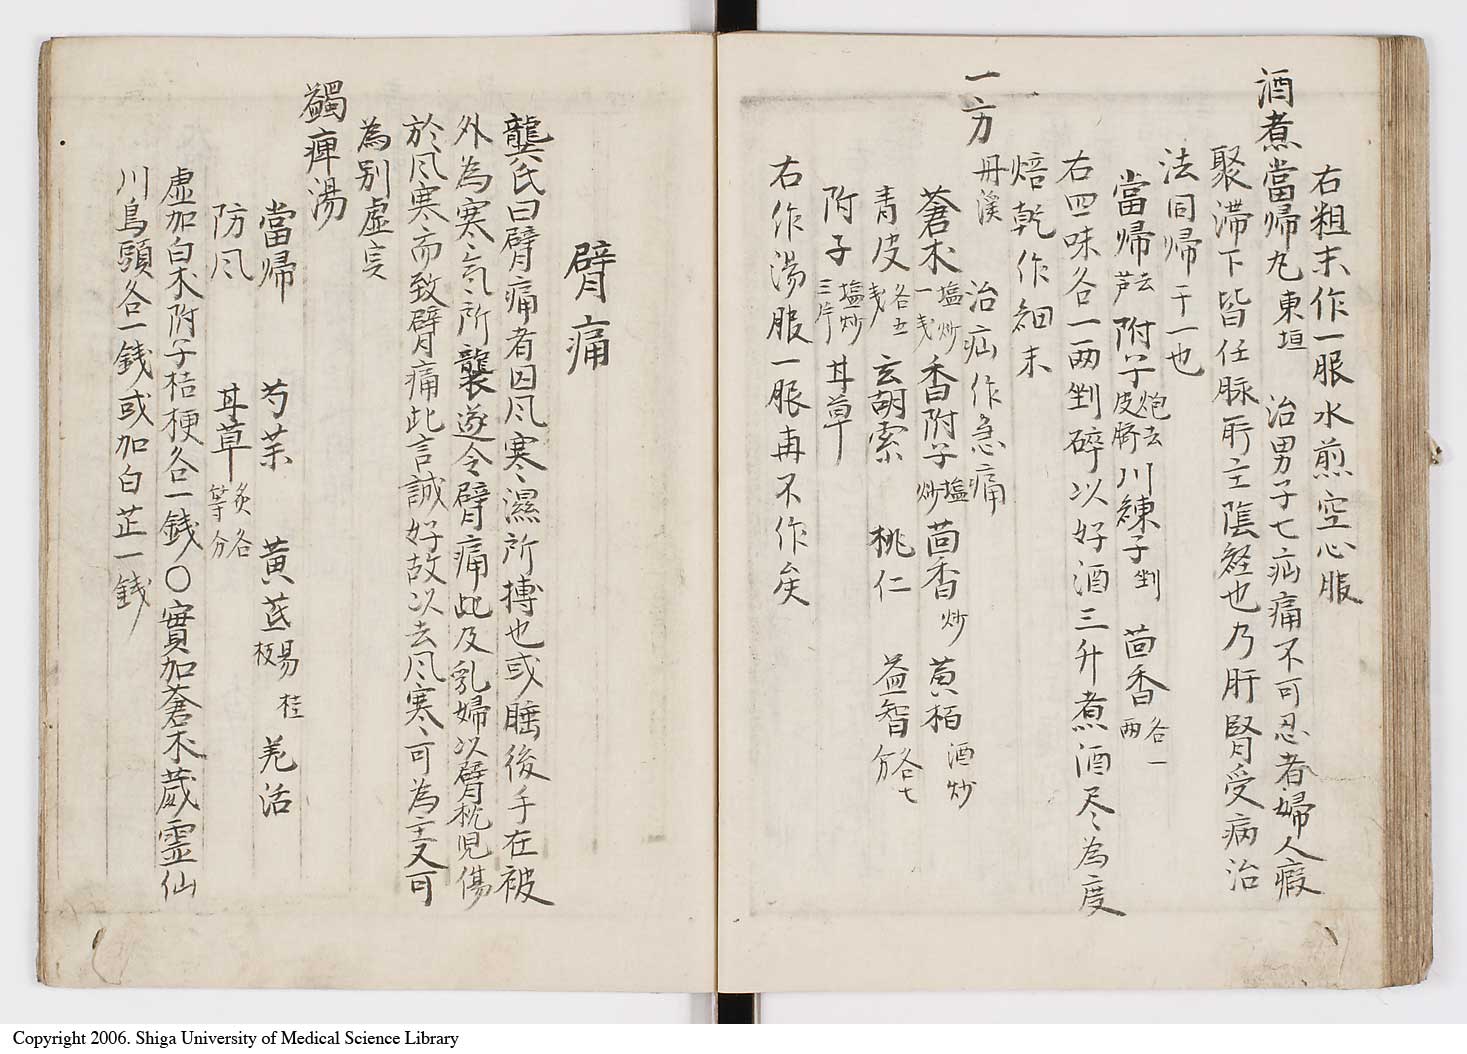 右粗末作一服水煎空心服
酒煮當帰丸東垣 治男子七疝痛不可忍者婦人瘕
聚滞下皆任脉所主陰経也乃肝腎受病治
法同帰于一也
當帰去芦 附子炮去皮臍 川練子剉 茴香各一両
右四味各一両剉碎以好酒三升煮酒尽為度
焙乾作細末
一方丹溪 治疝作急痛
蒼朮塩炒一戋 香附子塩炒 茴香炒 黄栢酒炒
青皮各五戋 玄胡索 桃仁 益智各七分
附子塩炒三片 甘草
右作湯服一服再不作矣
臂痛
龔氏曰臂痛者因风寒濕所摶也或睡後手在被
外為寒气所襲遂令臂痛此及乳婦以臂枕児傷
於风寒而致臂痛此言誠好故以去风寒可為主又可
為別虚実
蠲痺湯
當帰 芍茱 黄芪 羌活
防风 甘草炙各等分
虚加白朮附子桔梗各一錢〇實加蒼朮葳霊仙
川烏頭各一錢或加白芷一錢
Copyright 2006. Shiga University of Medical Science Library